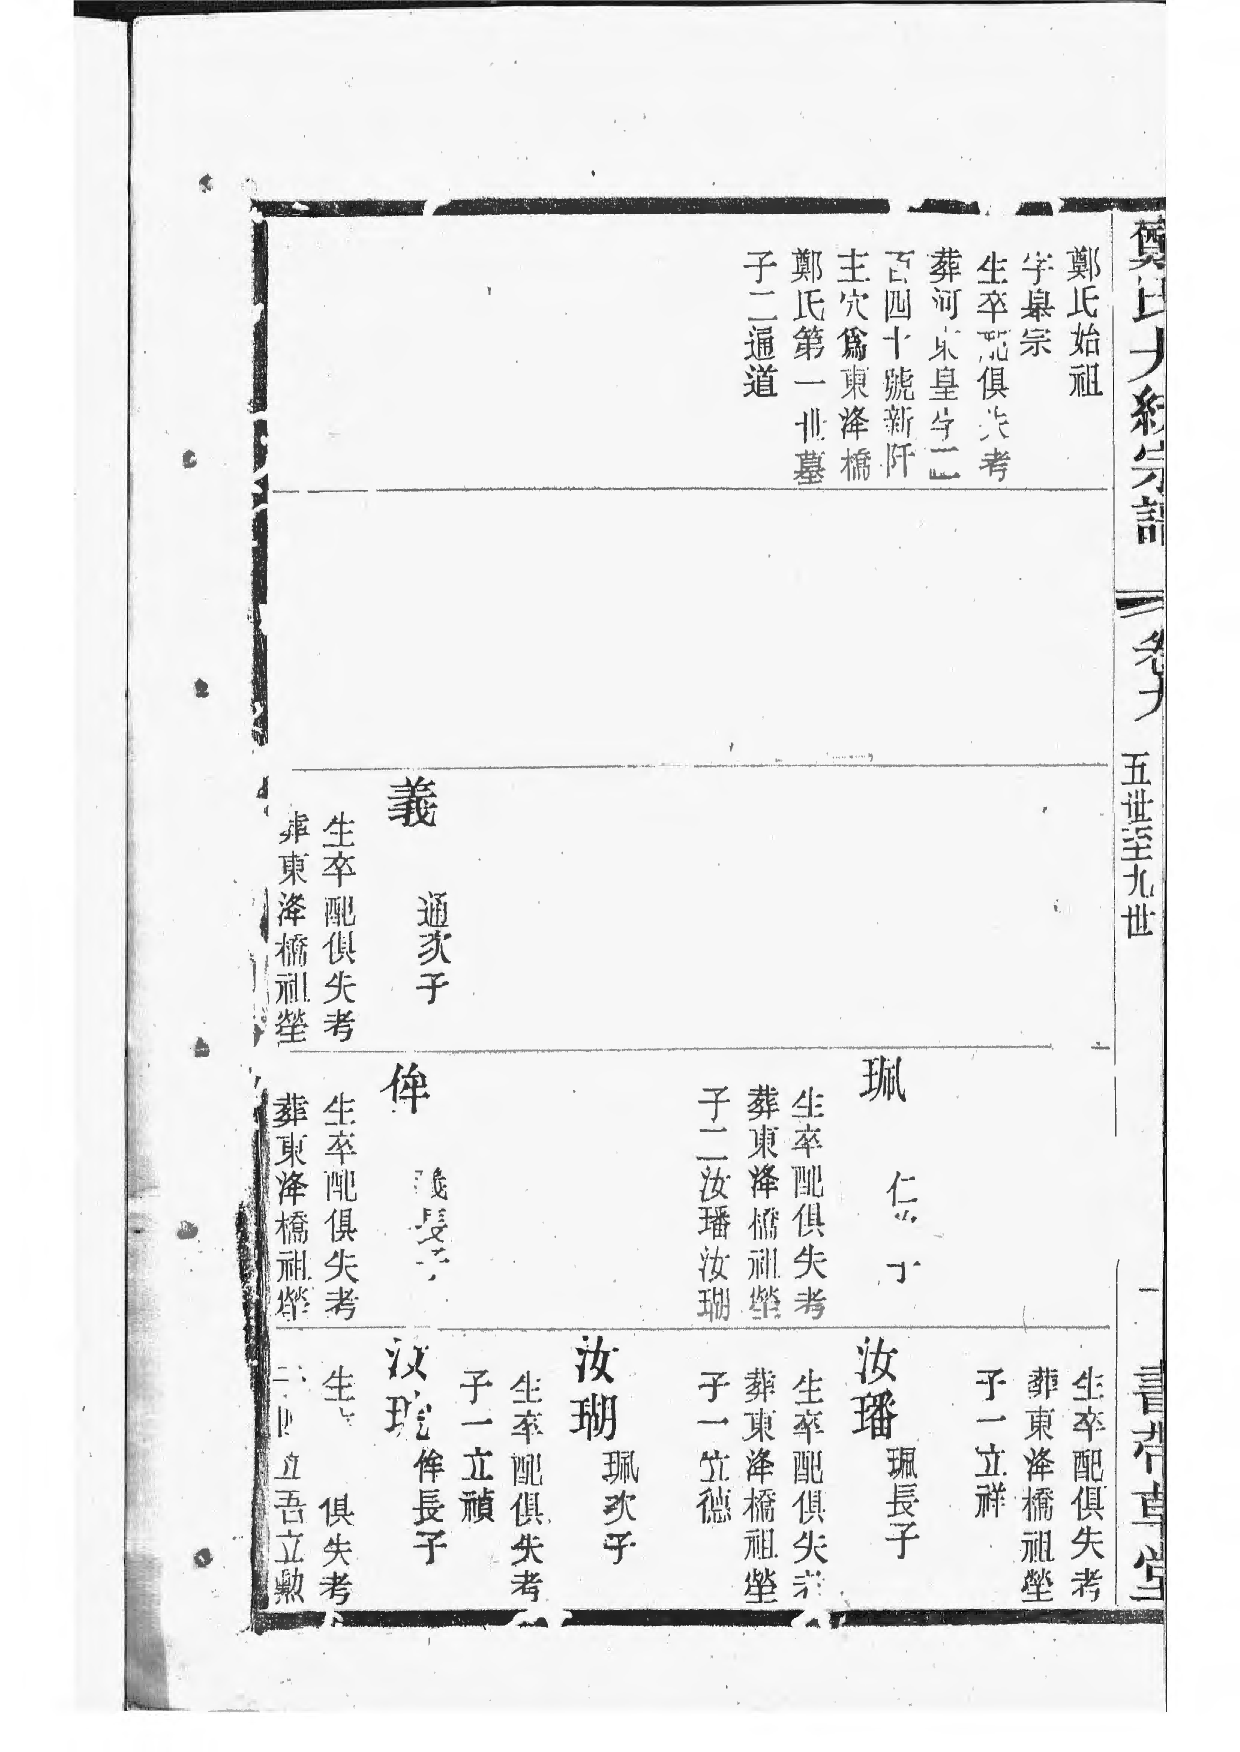 鄭氏大統宗譜
卷九
五世至九世
一
書帶草堂
鄭氏始祖
字皐宗
生卒配俱失考
葬河東皇字二
百四十號新阡
主穴爲東洚橋
鄭氏第一世墓
子二通道
義
通次子
生卒配俱失考
葬東洚橋祖塋
珮
仁 子
生卒配俱失考
葬東洚橋祖塋
子二汝璠汝瑚
侔
義長子
生卒配俱失考
葬東洚橋祖塋
生卒配俱失考
葬東洚橋祖塋
子一立祥
汝璠
珮長子
生卒配俱失考
葬東洚橋祖塋
子一立德
汝瑚
珮次子
生卒配俱失考
子一立禎
汝
侔長子
生 俱失考
立吾立勲